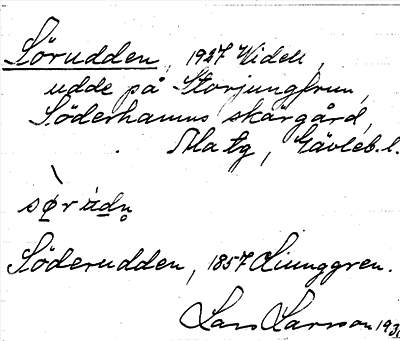 Sörudden, 1927 Widell,
udde på Storjungfrun,
Söderhamns skärgård,
Gävleb. l.
Söderudden, 1857 Ljunggren.
Lars Larsson 193